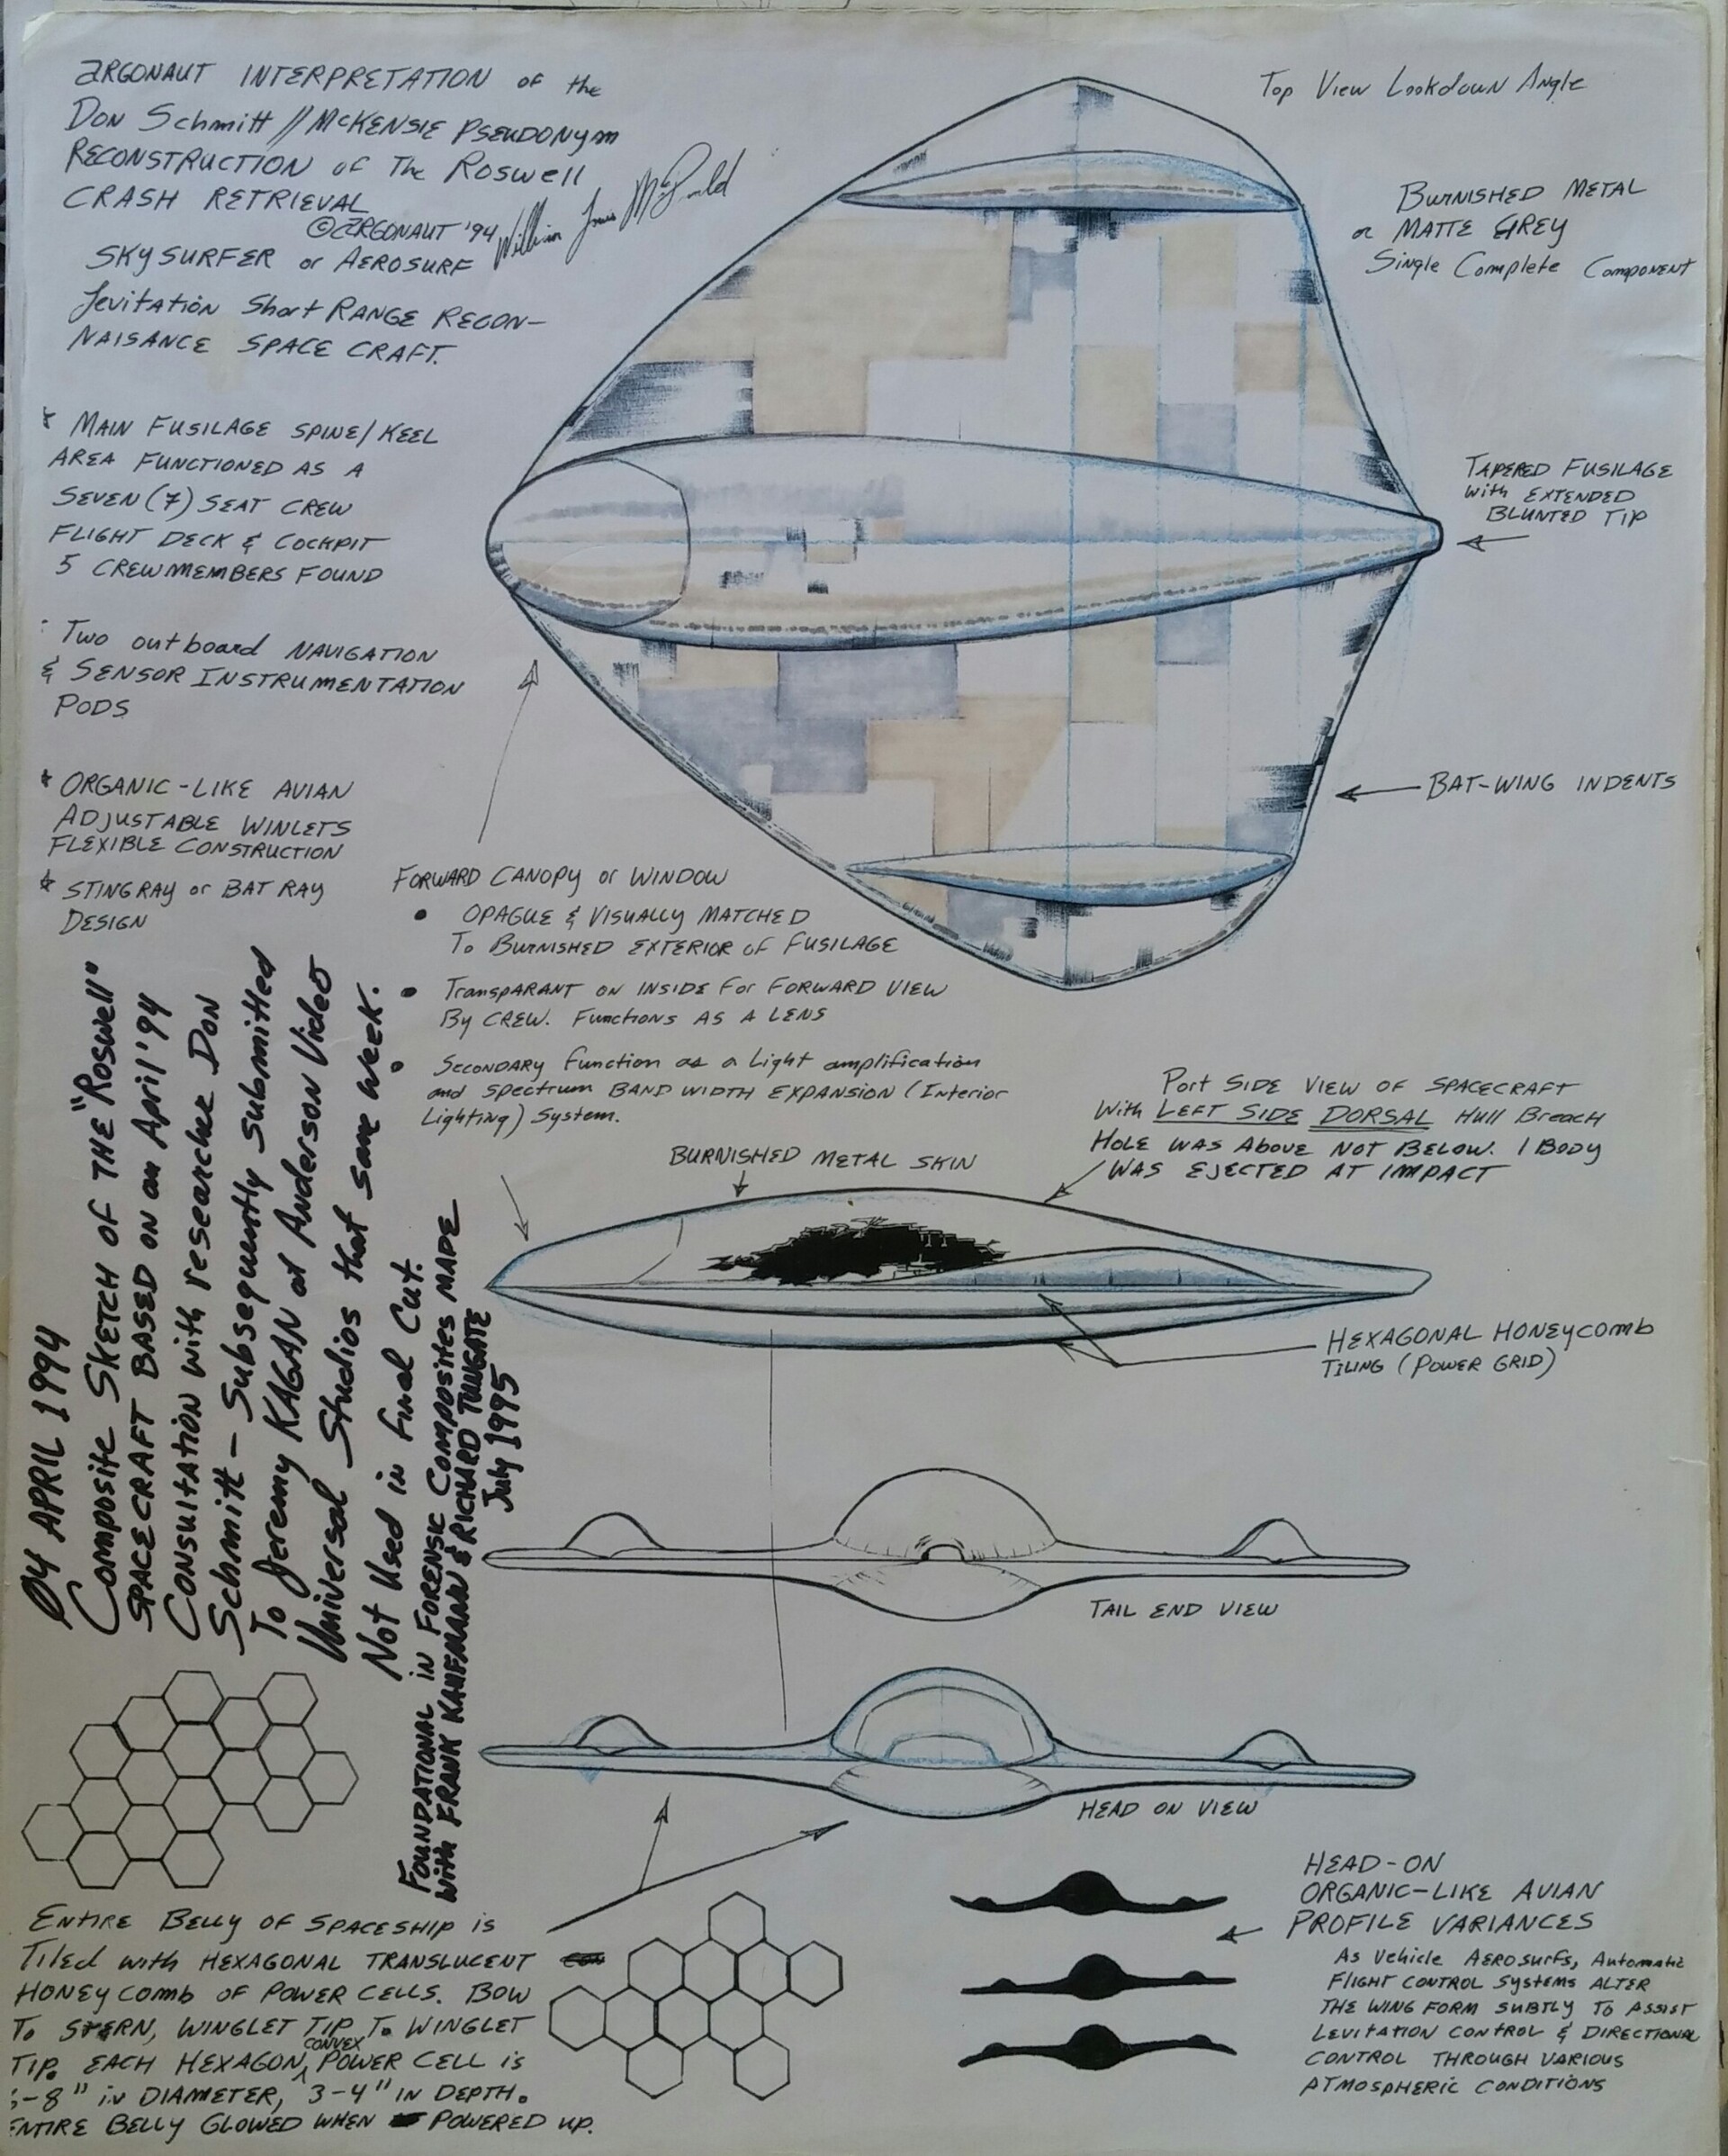 ARGONAUT INTERPRETATION of the
DON Schmitt // McKENSIE PSEUDONYM
RECONSTRUCTION of The Roswell
CRASH RETRIEVAL
© ARGONAUT '94 William Louis McDonald
SKYSURFER or AEROSURF
Levitation Short RANGE RECON-
NAISANCE SPACE CRAFT.
* MAIN FUSILAGE SPINE/KEEL
AREA FUNCTIONED AS A
SEVEN (7) SEAT CREW
FLIGHT DECK & COCKPIT
5 CREWMEMBERS FOUND
Two outboard NAVIGATION
& SENSOR INSTRUMENTATION
PODS
* ORGANIC-LIKE AVIAN
ADJUSTABLE WINLETS
FLEXIBLE CONSTRUCTION
* STINGRAY or BAT RAY
DESIGN
Top View Lookdown Angle
BURNISHED METAL
or MATTE GREY
Single Complete Component
TAPERED FUSILAGE
with EXTENDED
BLUNTED TIP
BAT-WING INDENTS
FORWARD CANOPY or WINDOW
• OPAGUE & VISUALLY MATCHED
To BURNISHED EXTERIOR of FUSILAGE
• TransPARANT ON INSIDE For FORWARD VIEW
By CREW. Functions AS A LENS
• SECONDARY function as a Light amplification
and spectrum BAND WIDTH EXPANSION (Interior
Lighting) System.
Port SIDE VIEW OF SPACECRAFT
With LEFT SIDE DORSAL Hull Breach
HOLE WAS ABOVE NOT BELOW. 1 BODY
WAS EJECTED AT IMPACT
BURNISHED METAL SKIN
HEXAGONAL HONEYcomb
TILING (POWER GRID)
TAIL END VIEW
HEAD ON VIEW
04 APRIL 1994
Composite SKETCH OF THE "Roswell"
SPACECRAFT BASED ON an April '94
Consultation with researcher Don
Schmitt - Subsequently Submitted
To Jeremy KAGAN at Anderson Video
Universal Studios that same week.
Not Used in Final Cut.
FOUNDATIONAL in FORENSIC Composites MADE
with FRANK KAUFMANN & RICHARD TUNGATE
July 1995
ENTIRE BELLY OF SPACESHIP is
Tiled with HEXAGONAL TRANSLUCENT
HONEYcomb OF POWER CELLS. BOW
To STERN, WINGLET TIP To WINGLET
TIP. EACH HEXAGON, CONVEX POWER CELL is
-8" in DIAMETER, 3-4" IN DEPTH.
ENTIRE BELLY GLOWED WHEN POWERED UP.
HEAD-ON
ORGANIC-LIKE AVIAN
PROFILE VARIANCES
As Vehicle AEROsurfs, Automatic
FLIGHT CONTROL Systems ALTER
THE WING FORM SUBTLY To ASSIST
LEVITATION CONTROL & DIRECTIONAL
CONTROL THROUGH VARIOUS
ATMOSPHERIC CONDITIONS